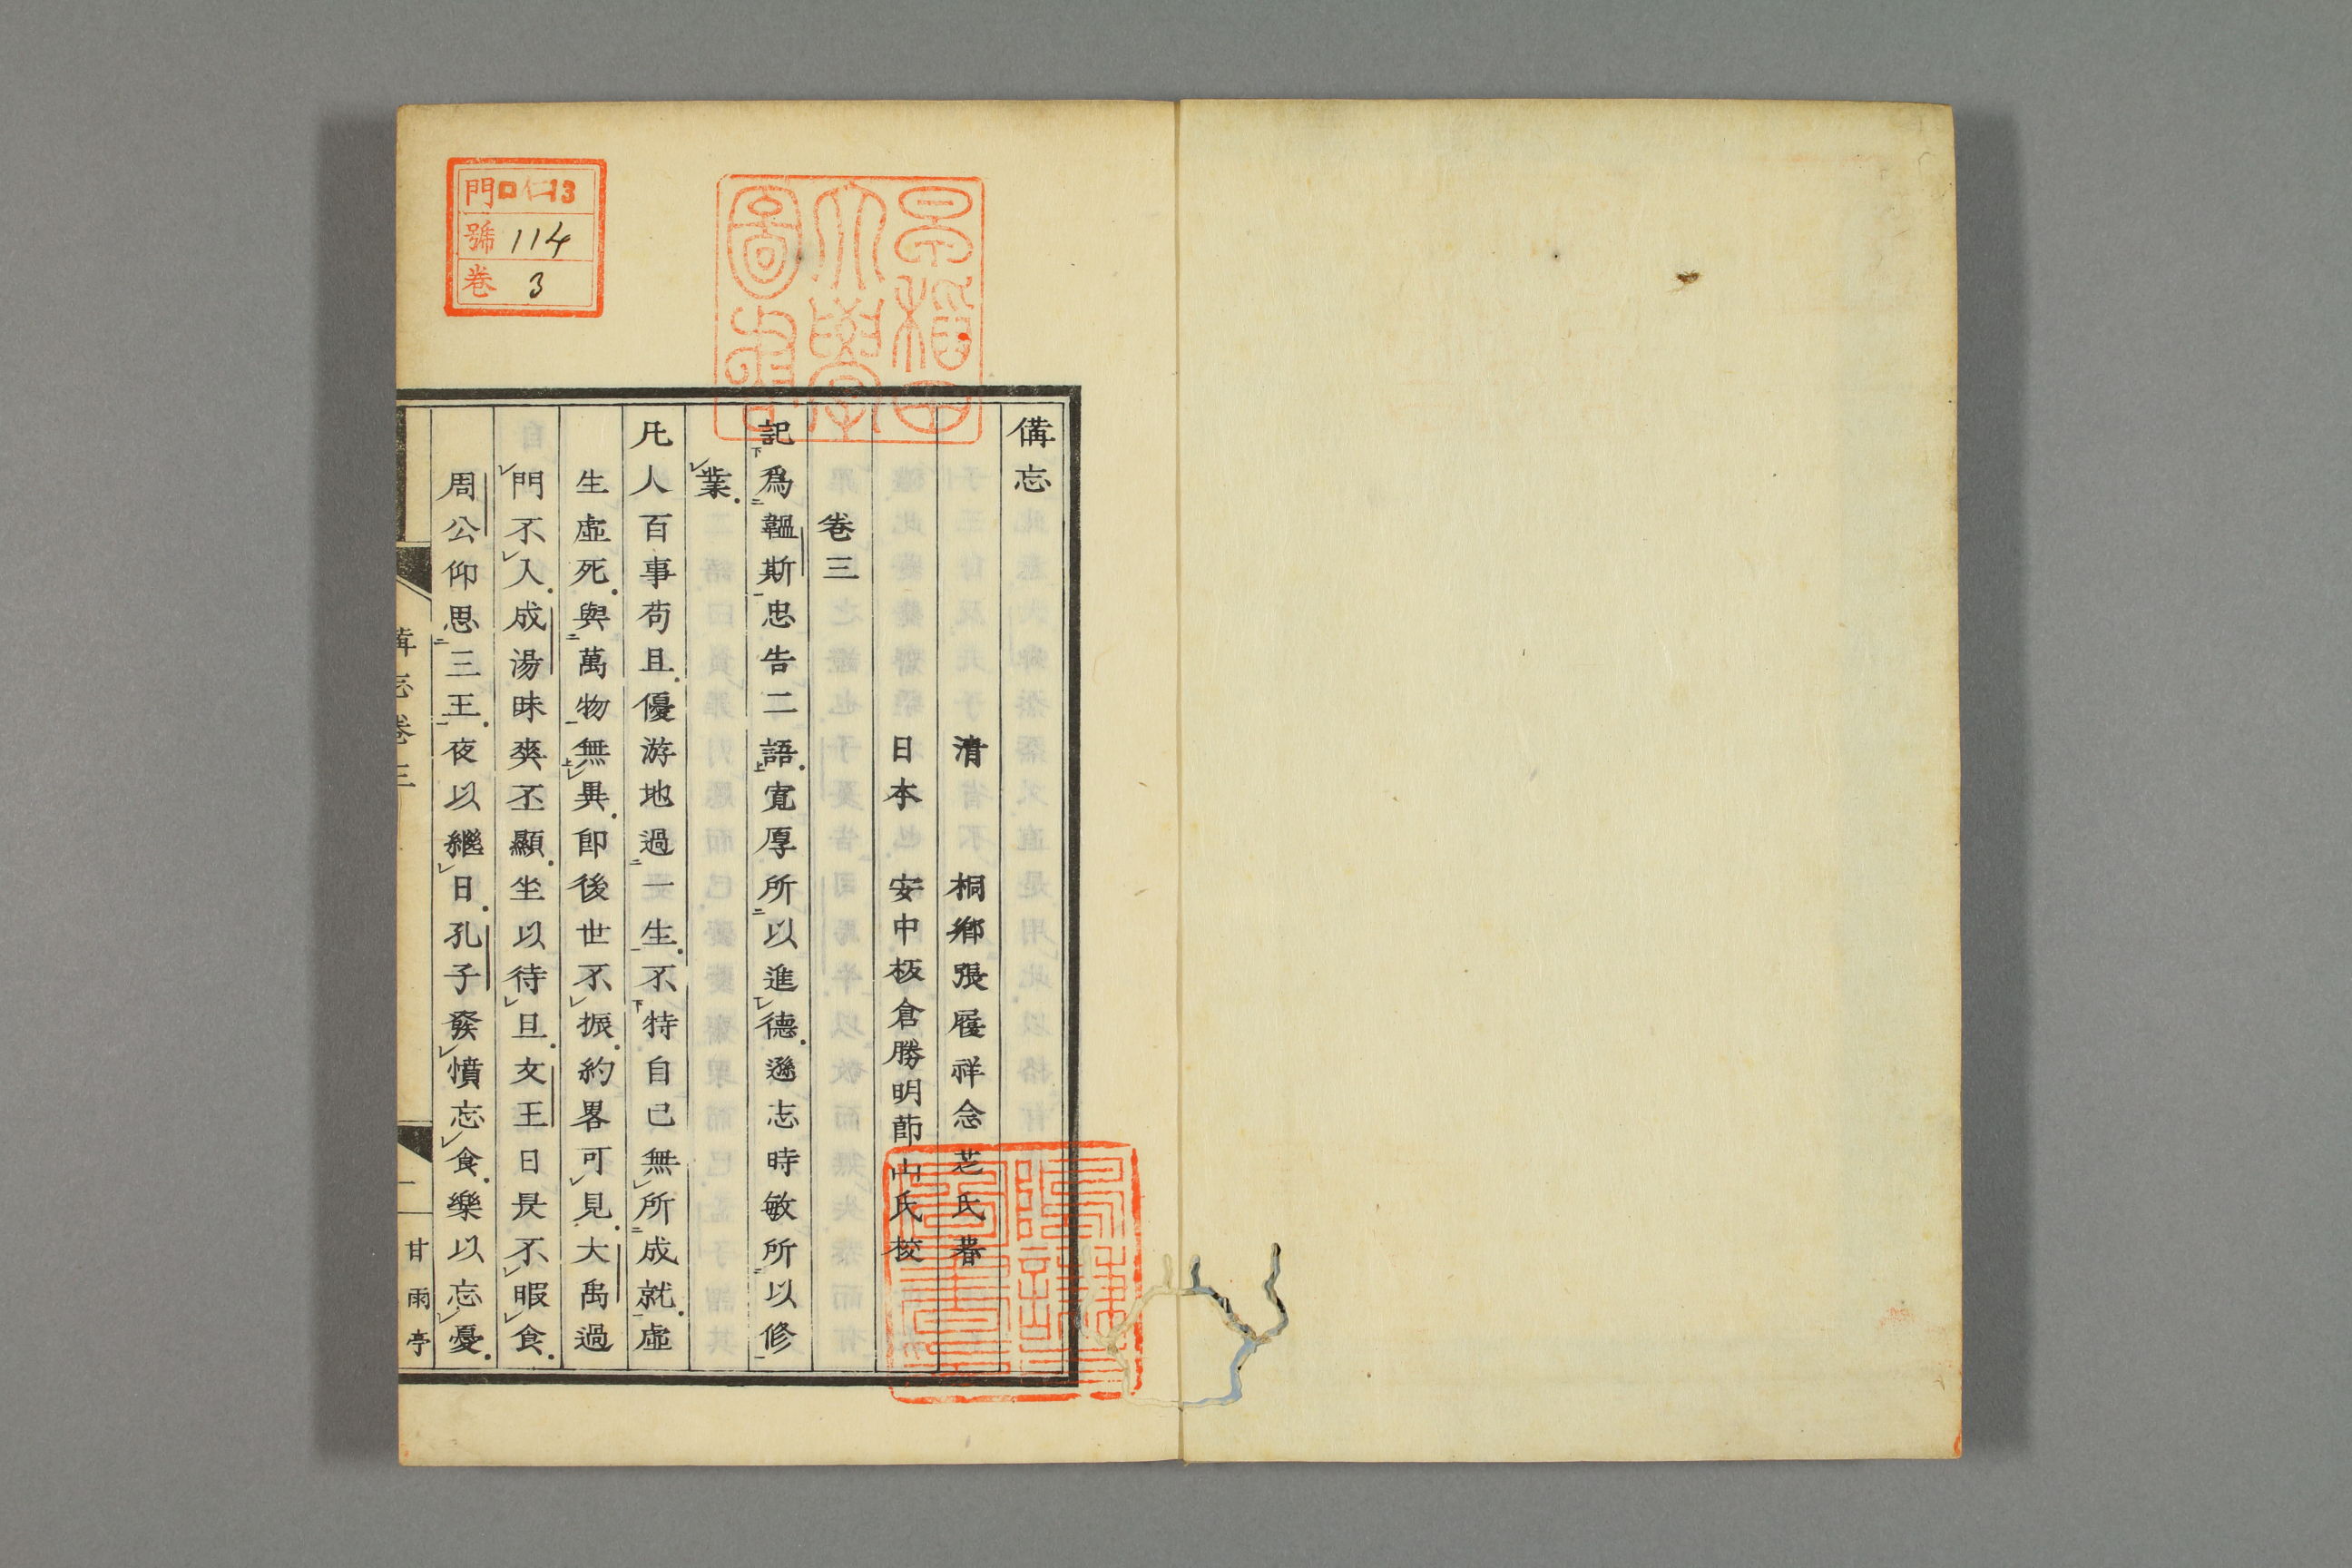 備忘
清　桐鄉張履祥念芝氏著
日本　安中板倉勝明節山氏校
卷三
記為韞斯忠告二語寬厚所以進德遜志時敏所以修
業
凡人百事苟且優游地過一生不特自己無所成就虛
生虛死與萬物無異即後世不振約畧可見大禹過
門不入成湯昧爽丕顯坐以待旦文王日昃不暇食
周公仰思三王夜以繼日孔子發憤忘食樂以忘憂
備忘卷三
一
甘雨亭
門 口仁13
號 114
卷 3
早稻田
大學
圖書